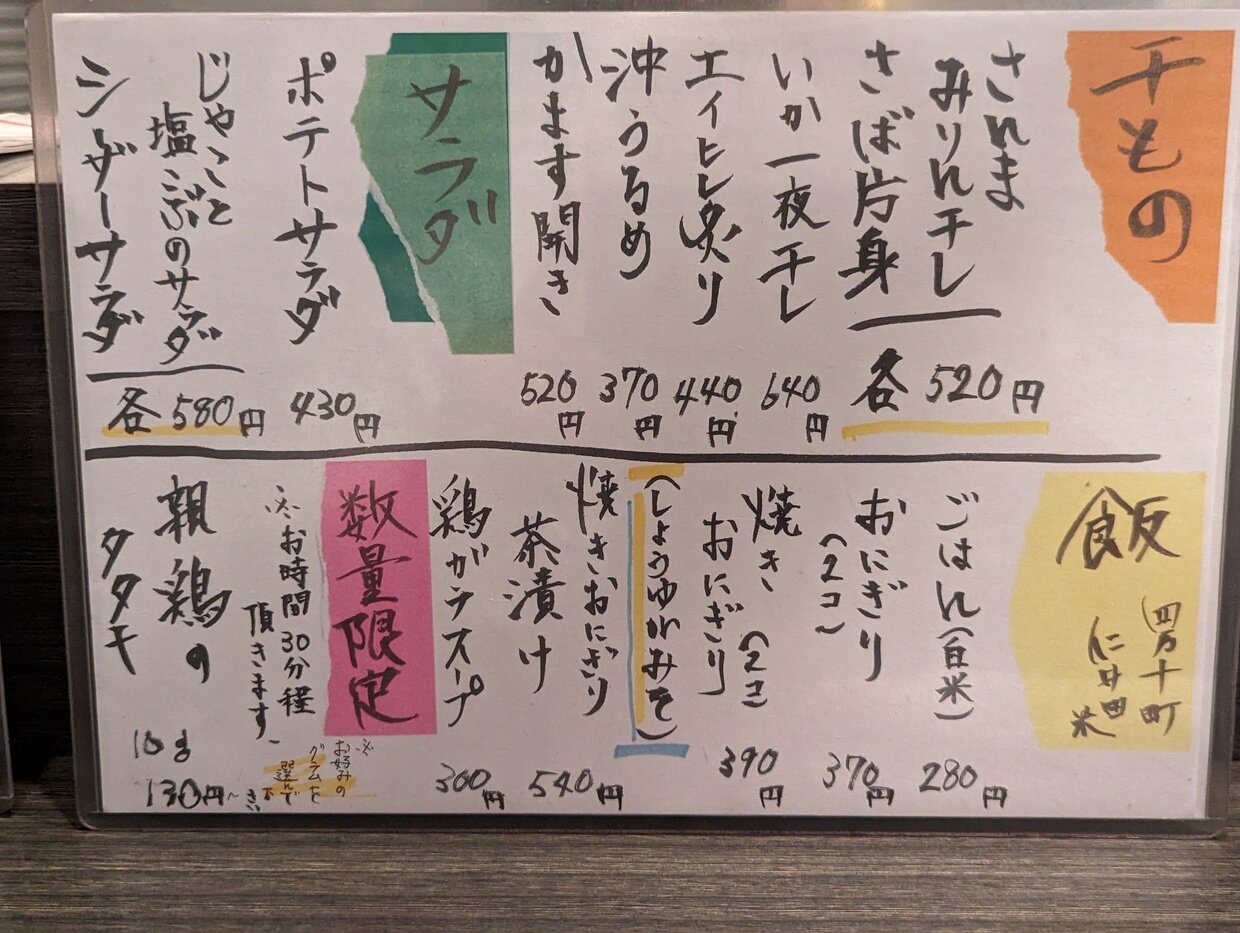 干もの
さんま
みりん干し
さば片身
各 520円
いか一夜干し
640円
エイヒレ炙り
440円
沖うるめ
370円
かます開き
520円
サラダ
ポテトサラダ
430円
じゃことと
塩こぶのサラダ
シーザーサラダ
各 580円
飯
(四万十町
仁井田米
ごはん(白米)
280円
おにぎり
(2コ)
370円
焼き
おにぎり
(2コ)
(しょうゆ がみそ)
390円
焼きおにぎり
茶漬け
540円
鶏がラスープ
300円
数量限定
※お時間30分程
頂きます。
親鶏の
タタキ
10g
130円~
※
お好みの
グラムを
選んで
下さい